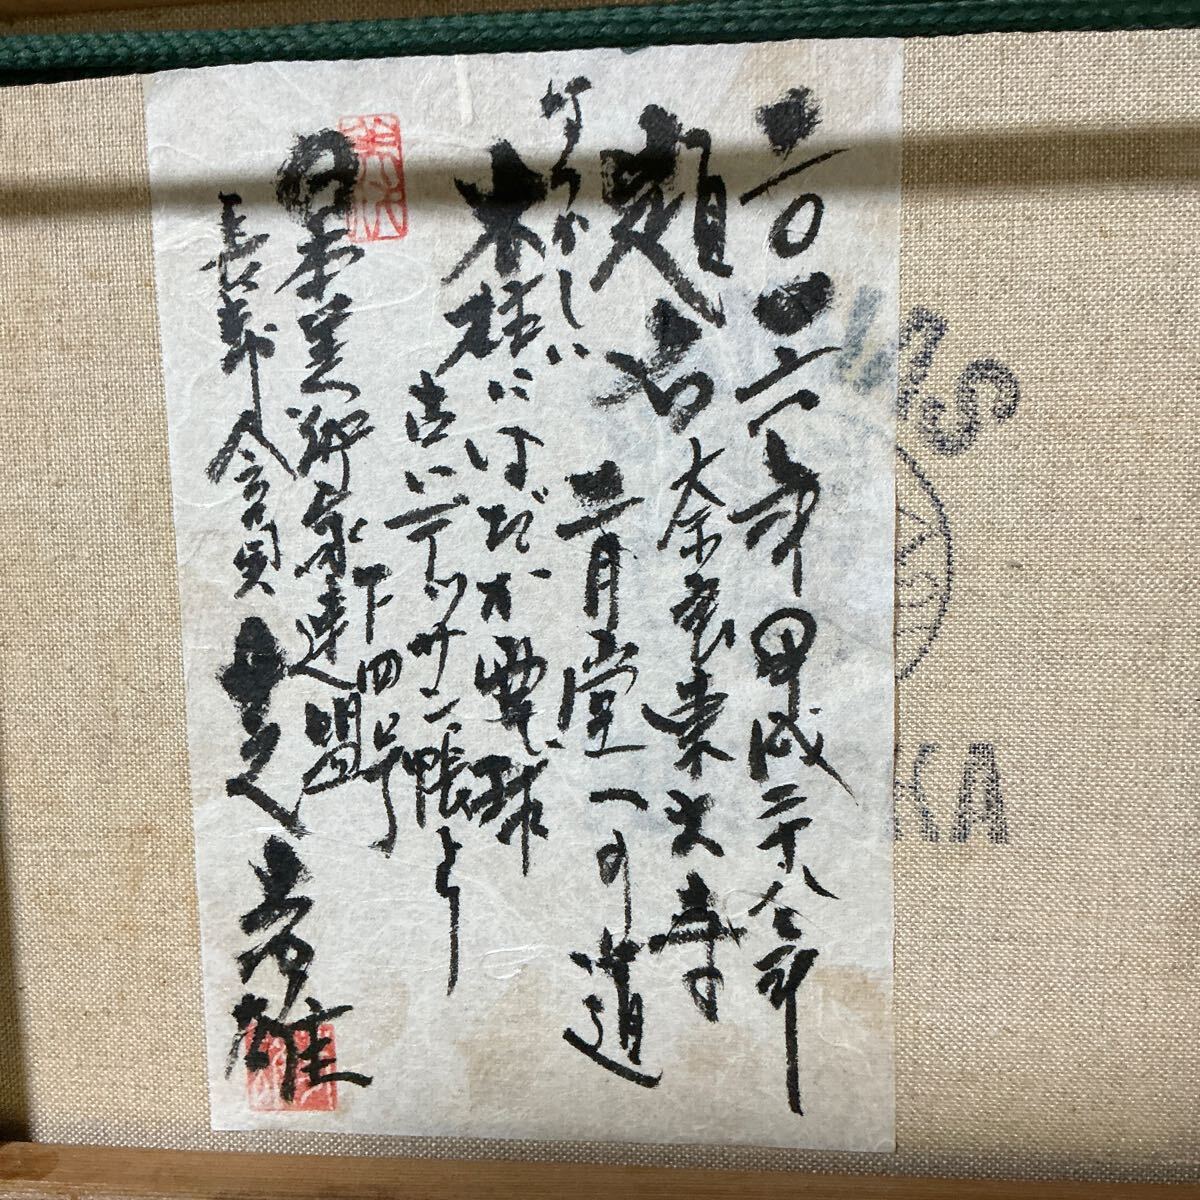 二〇一六年 平成二十八年
題名 奈良東大寺の
二月堂への道
なつかしい
木柱にはだか電球
古いデッサン帳より
下四号
日本美術家連盟
長寿会員
芳雄
KA